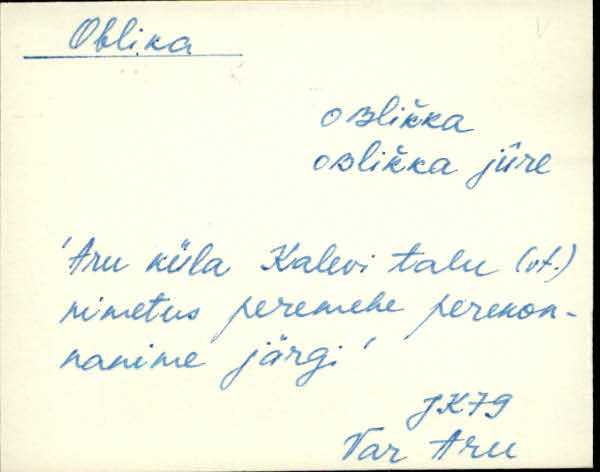 Oblika
oʙlička
oʙlička jüre
'Aru küla Kalevi talu (vt.)
nimetus peremehe perekon-
nanime järgi'
JK79
Var Aru